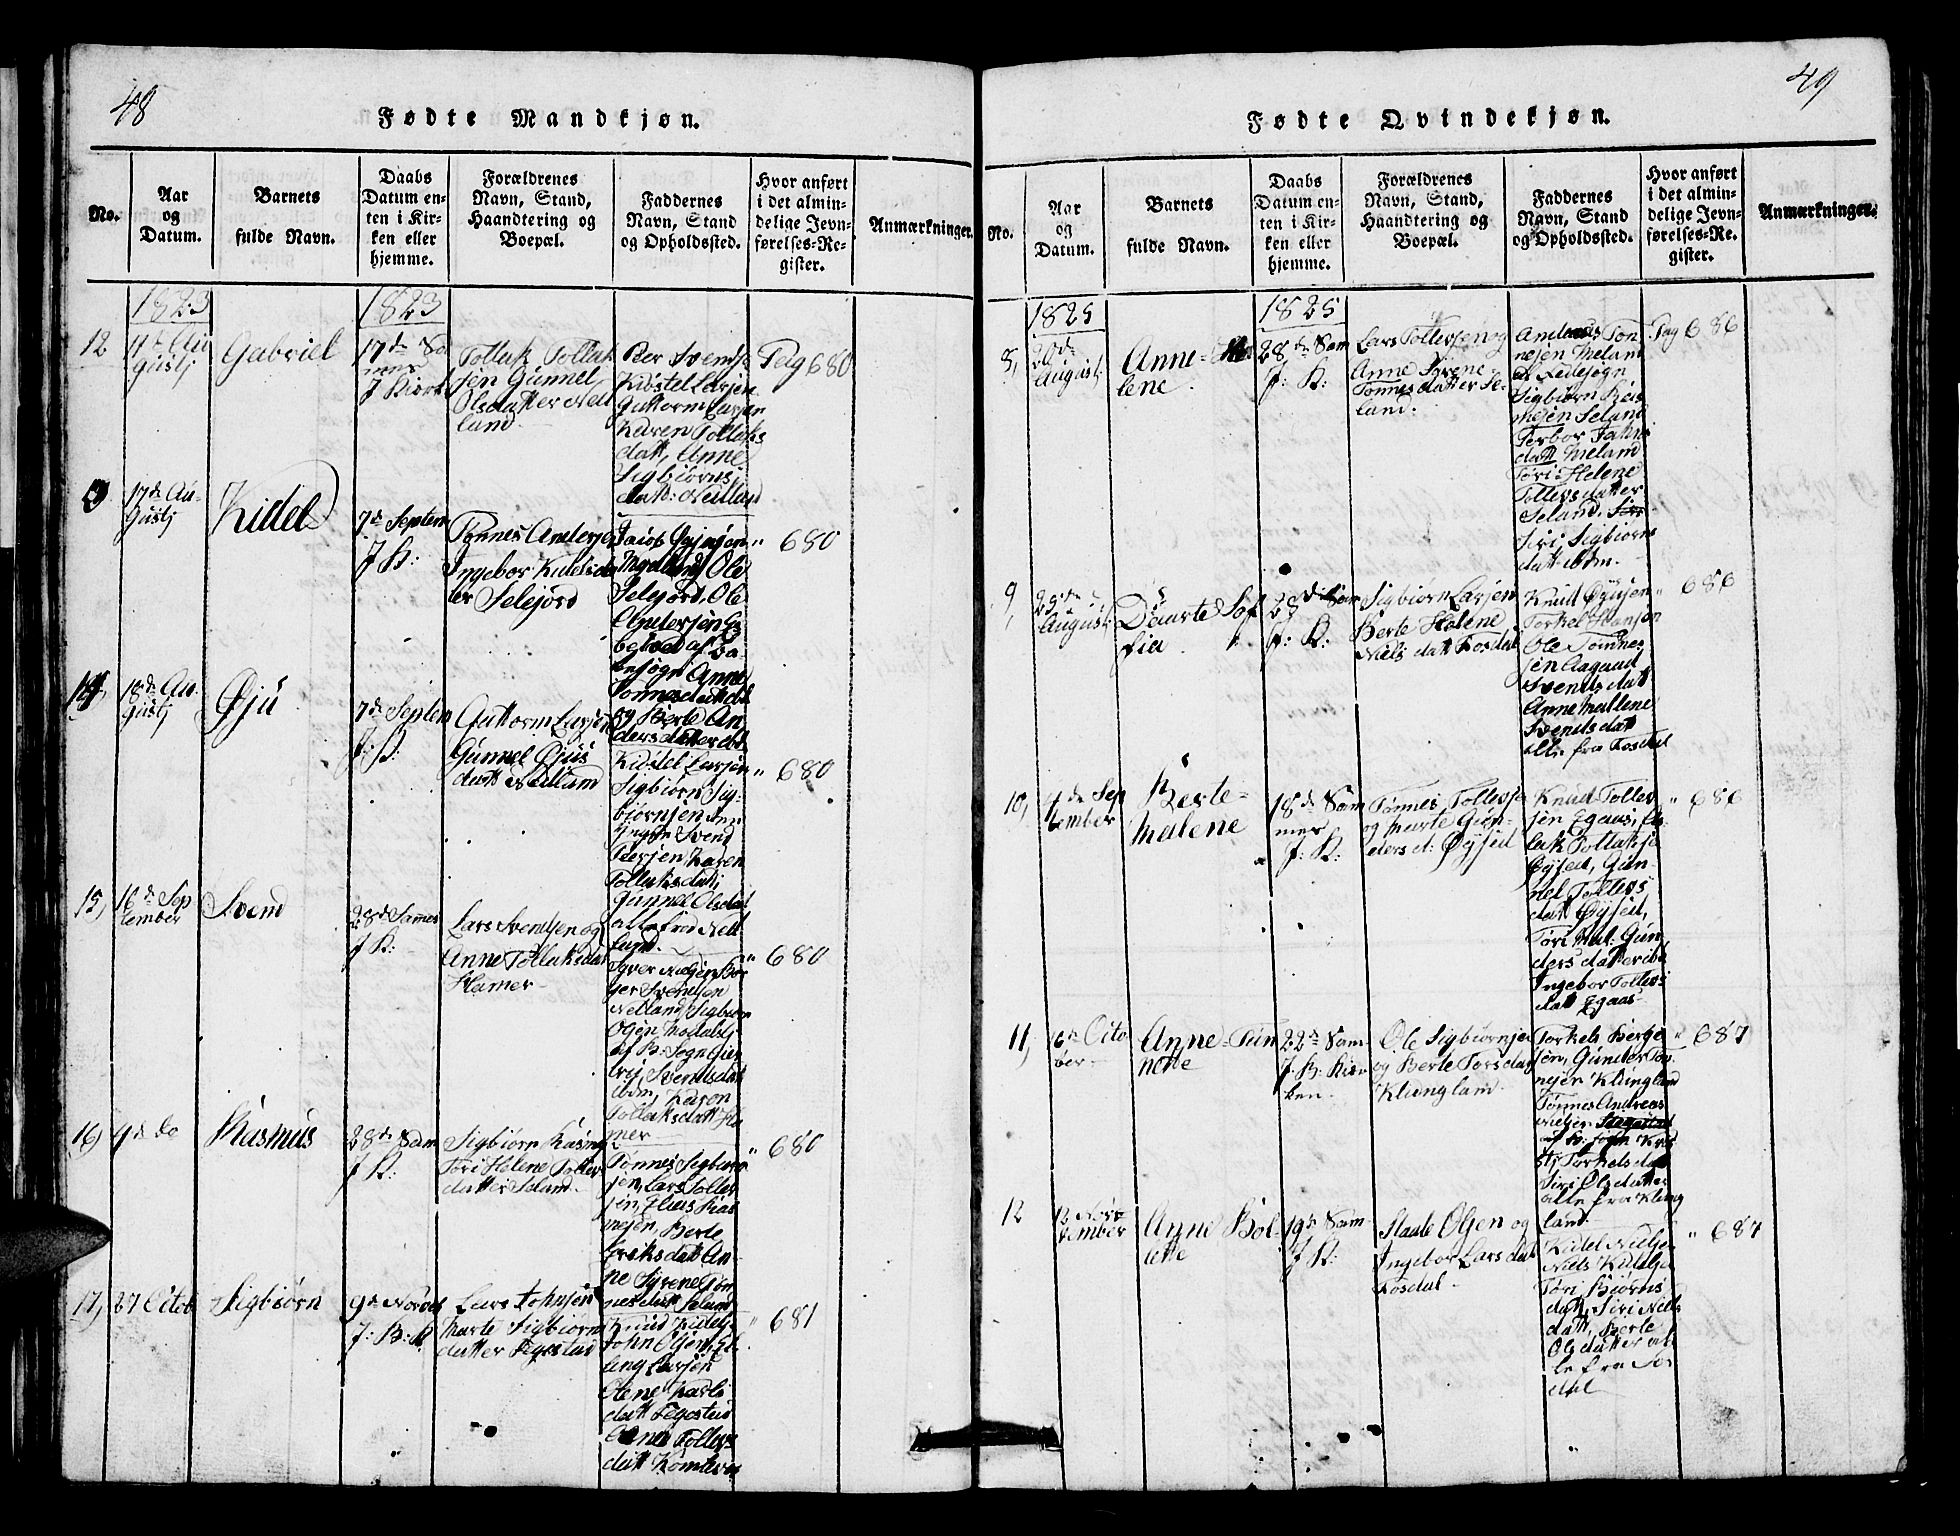 48
Fødte Mandkjøn.
No.
Aar
og
Datum.
Barnets
fulde Navn.
Daabs
Datum en-
ten i Kir-
ken eller
hjemme.
Forældrenes
Navn, Stand,
Haandtering og
Boepæl.
Faddernes
Navn, Stand
og Opholdssted.
Hvor anført
i det almin-
delige Jevn-
førelses-Re-
gister.
Anmærkninger.
1823
1823
12
11te Au
gustj
Gabriel
17de Sa
mes
J Kirk
Tollak Tollak
sen Gunnel
Olsdatter Nell
land.
Per Svends
Kidstel Larsen
Guttorm Larsen
Karen Tollaks
datt, Anne
Sigbiørns
datt: Nelland
Pag 680
17de Au-
gustj
Kidel
7de Septem
J K:
Tønnes Andersen
Ingebor Kidelsda
ter Selejord
Jacob
Ole
Selejord, Ole
Andersen
af Ba
Anne
Tønnesdatt
og Berte An
dersdatter
" 680
14,
18de Au-
gustj
Øju
7de Septem
J: K:
Guttorm Larsen
Gunnel Øjus
datt Nelland
Kidstel Larsen
Sigbiørn Sig-
biørnsen
Svend
Persen Karen
Tollaksdatt,
Gunnel Olsdat
alle fra Nell
land.
" 680
15,
16de Sep
tember
Svend
28d Sames
J K:
Lars Svendsen og
Anne Tollaksdat
Hamer
Syver Nielsen Bor
ger Svendsen
Nelland, Sigbiørn
Olsen
af B: Sogn, Siri
Svendsdat
ibdm, Karen
Tollaksdatt Ha
mer
" 680
16,
9de do
Rasmus
28de Sam
J K:
Sigbiørn Rasmus
Tori Helene Toller
datter Seland.
Tønnes Sigbiørn
sen, Lars Toller
sen, Elias Ras
mesen, Berte
Eriksdatt An-
ne Syrene Tøn
nesdatt Seland
" 680
17,
27 Octob
Sigbiørn
9de Novbr
J: B: K
Lars Johnsen
Marte Sigbiørn
datter Fegestad
Knud Kidels
John Olsen, El
ling Larsen
Olene Karls
datt Fegestad
Anne Tollevs
datt
" 681
49
Fødte Qvindekjøn.
No.
Aar
og
Datum.
Barnets
fulde Navn.
Daabs
Datum en-
ten i Kir-
ken eller
hjemme.
Forældrenes
Navn, Stand,
Haandtering og
Boepæl.
Faddernes
Navn, Stand
og Opholdssted.
Hvor anført
i det almin-
delige Jevn-
førelses-Re-
gister.
Anmærkninger.
1825
1825
8,
20de
August
Anne-Ma
lene
28de Sam
J: K:
Lars Tollevsen og
Anne Syrene
Tønnesdatter Se-
land.
Andreas Tøn
nesen Meland
Sigbiørn Ras
mesen Seland
Terbor
datt Meland
Tori Helene
Tollevsdatter
Seland,
Siri Sigbiørn
datt ibdm.
Pag 686
9,
25de
August
Daarte Sof
fia
28de Sam
J: K:
Sigbiørn Larsen
Berte Helene
Niels datt Fosdal
Knud Øyusen
Torkel Hansen
Ole Tønne
sen Aagaad
Svendsdatt
Anne Mallene
Svendsdatt
alle fra Fosdal
" 686
10,
4de Sep
tember
Berte-
Malene
18de Sam
mer
J: K:
Tønnes Tollevse
og Marte Gun-
dersd: Øysed
Knud Tollev
sen Egaas,
lak Tollakse
Øysed, Gun-
nel Tollevs
datt Øysed,
Tori Mal: Gun
dersdatter ibd
Ingebor Tollevs
datt Egaas
" 686
11,
16de Octo
ber
Anne-Tun
nene
22de Sam
J: B: Kir
ken.
Ole Sigbiørnsen
og Berte Torsdat
Klungland.
Torkels Børge
sen, Gunder Tøn
nesen Klungland
Tønnes Andreas
Nielsen
af B: Sogn
Torkelsdat
Siri Olsdatter
alle fra Klung
land.
" 687
12
12 Nov
vember
Anne Bol-
ette
19de Sam
J: K:
Staale Olsen og
Ingebor Larsdat
Fosdal
Kidel Nielse
Niels Kidelse
Tori Biørns
datt, Siri Niels
datt, Berte
Olsdatter al-
le fra Fos
dal
" 687